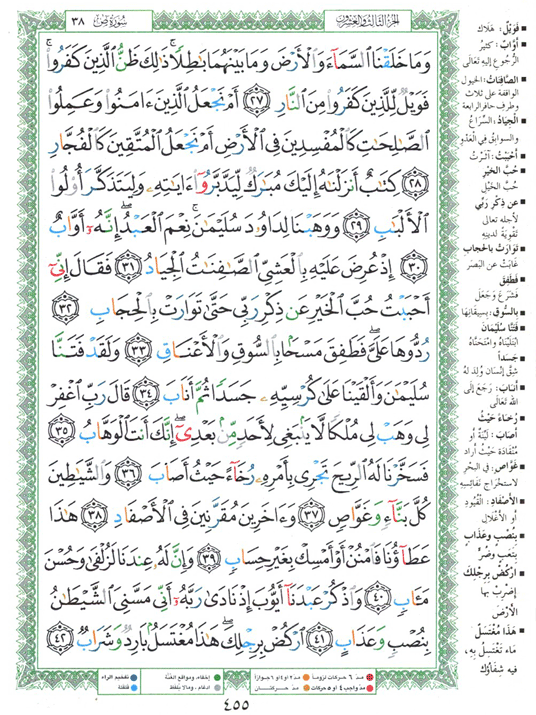 ٣٨
سُورَةُ صۤ
الجزء الثالث والعشرون
وَمَا خَلَقْنَا ٱلسَّمَآءَ وَٱلْأَرْضَ وَمَا بَيْنَهُمَا بَٰطِلًا ۚ ذَٰلِكَ ظَنُّ ٱلَّذِينَ كَفَرُوا۟ ۚ
فَوَيْلٌ لِّلَّذِينَ كَفَرُوا۟ مِنَ ٱلنَّارِ ٢٧ أَمْ نَجْعَلُ ٱلَّذِينَ ءَامَنُوا۟ وَعَمِلُوا۟
ٱلصَّٰلِحَٰتِ كَٱلْمُفْسِدِينَ فِى ٱلْأَرْضِ أَمْ نَجْعَلُ ٱلْمُتَّقِينَ كَٱلْفُجَّارِ
٢٨ كِتَٰبٌ أَنزَلْنَٰهُ إِلَيْكَ مُبَٰرَكٌ لِّيَدَّبَّرُوٓا۟ ءَايَٰتِهِۦ وَلِيَتَذَكَّرَ أُو۟لُوا۟
ٱلْأَلْبَٰبِ ٢٩ وَوَهَبْنَا لِدَاوُۥدَ سُلَيْمَٰنَ ۚ نِعْمَ ٱلْعَبْدُ ۖ إِنَّهُۥٓ أَوَّابٌ
٣٠ إِذْ عُرِضَ عَلَيْهِ بِٱلْعَشِىِّ ٱلصَّٰفِنَٰتُ ٱلْجِيَادُ ٣١ فَقَالَ إِنِّىٓ
أَحْبَبْتُ حُبَّ ٱلْخَيْرِ عَن ذِكْرِ رَبِّى حَتَّىٰ تَوَارَتْ بِٱلْحِجَابِ ٣٢
رُدُّوهَا عَلَىَّ ۖ فَطَفِقَ مَسْحًۢا بِٱلسُّوقِ وَٱلْأَعْنَاقِ ٣٣ وَلَقَدْ فَتَنَّا
سُلَيْمَٰنَ وَأَلْقَيْنَا عَلَىٰ كُرْسِيِّهِۦ جَسَدًا ثُمَّ أَنَابَ ٣٤ قَالَ رَبِّ ٱغْفِرْ
لِى وَهَبْ لِى مُلْكًا لَّا يَنۢبَغِى لِأَحَدٍ مِّنۢ بَعْدِىٓ ۖ إِنَّكَ أَنتَ ٱلْوَهَّابُ ٣٥
فَسَخَّرْنَا لَهُ ٱلرِّيحَ تَجْرِى بِأَمْرِهِۦ رُخَآءً حَيْثُ أَصَابَ ٣٦ وَٱلشَّيَٰطِينَ
كُلَّ بَنَّآءٍ وَغَوَّاصٍ ٣٧ وَءَاخَرِينَ مُقَرَّنِينَ فِى ٱلْأَصْفَادِ ٣٨ هَٰذَا
عَطَآؤُنَا فَٱمْنُنْ أَوْ أَمْسِكْ بِغَيْرِ حِسَابٍ ٣٩ وَإِنَّ لَهُۥ عِندَنَا لَزُلْفَىٰ وَحُسْنَ
مَـَٔابٍ ٤٠ وَٱذْكُرْ عَبْدَنَآ أَيُّوبَ إِذْ نَادَىٰ رَبَّهُۥٓ أَنِّى مَسَّنِىَ ٱلشَّيْطَٰنُ
بِنُصْبٍ وَعَذَابٍ ٤١ ٱرْكُضْ بِرِجْلِكَ ۖ هَٰذَا مُغْتَسَلٌۢ بَارِدٌ وَشَرَابٌ ٤٢
فَوَيْلٌ: هَلَاك
أوَّابٌ: كثيرُ
الرُّجوعِ إليه تعالى
الصَّافِنَاتُ: الخيول
الواقفة على ثلاث
وطرف حافر الرابعة
الجِيَادُ: السِّرَاعُ
والسوابقُ في العَدْوِ
أحْبَبْتُ: آثَرْتُ
حُبَّ الخَيْرِ
حُبَّ الخَيْلِ
عن ذِكْرِ رَبِّي
لأجله تعالى
تقويةً لدينه
تَوَارَتْ بالحِجَابِ
غابتْ عن البَصَرِ
فَطَفِقَ
فَشَرَعَ وَجَعَلَ
بالسُّوقِ: بسيقانِها
فَتَنَّا سُلَيْمَانَ
ابتليناه وامتحنَّاه
جَسَداً
شِقَّ إنسان وُلِدَ له
أنَابَ: رَجَعَ إلى
الله تعالى
رُخَاءً حَيْثُ
أصَابَ: ليِّنةً أو
مُنْقادةً حيثُ أراد
غَوَّاصٍ: في البحرِ
لاستخراج نفائِسِه
الأصْفَادِ: القُيُودِ
أو الأغْلالِ
بِنُصْبٍ وعَذَابٍ
بتَعَبٍ وضُرٍّ
ارْكُضْ بِرِجْلِكَ
اضْرِبْ بها
الأرْضَ
هَذَا مُغْتَسَلٌ
ماء تغتسلُ به،
فيه شِفَاؤُك
مدّ ٦ حركات لزوماً
مدّ ٢ أو ٤ أو ٦ جوازاً
إخفاء، ومواقع الغنَّة
تفخيم الراء
مدّ واجب ٤ أو ٥ حركات
مدّ حركتان
ادغام، وما لا يُلفظ
قلقلة
٤٥٥